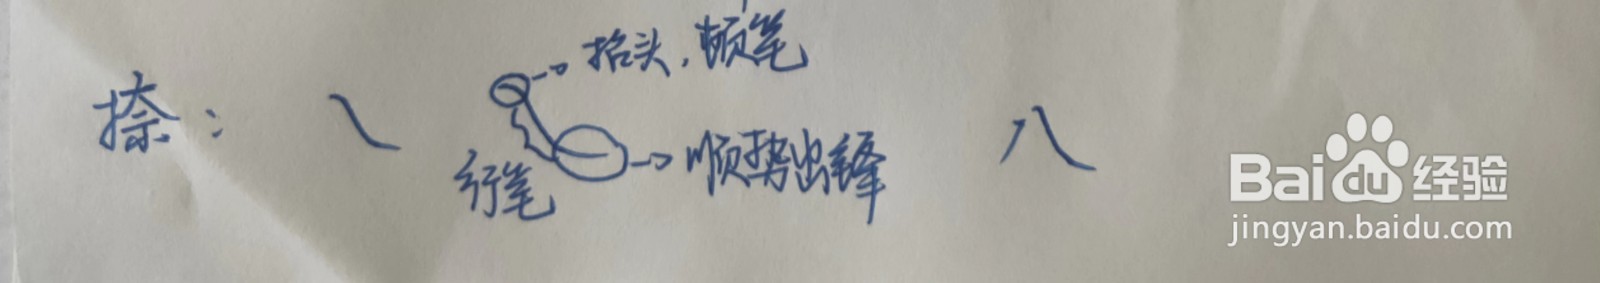 捺：㇏
抬头，顿笔
行笔
顺势出锋
八
Bai du 经验
jingyan.baidu.com